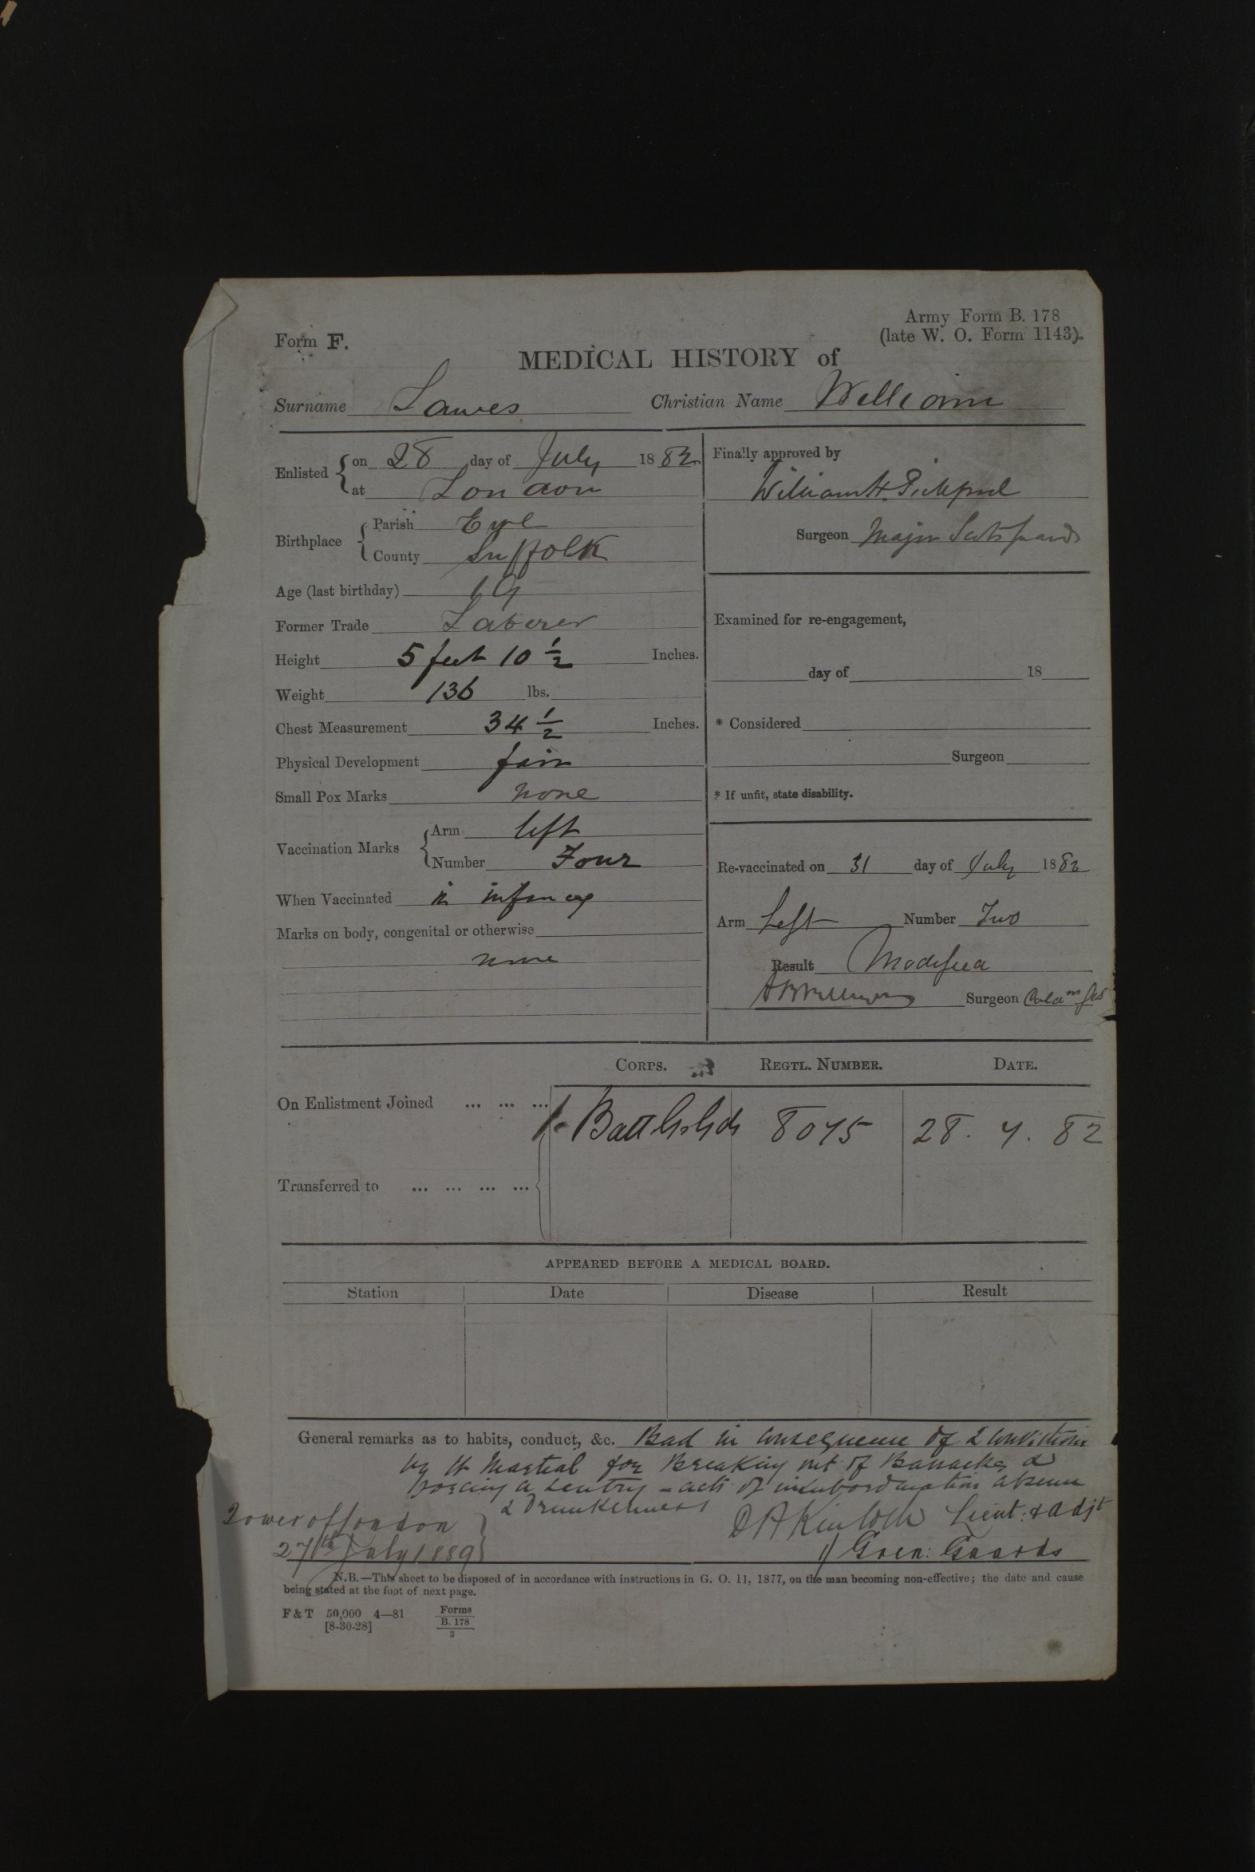 Army Form B. 178
Form F. (late W. O. Form 1143).
MEDICAL HISTORY of
Surname Lawes Christian Name William
Enlisted { on 28 day of July 18 82
at London
Birthplace { Parish Eye
County Suffolk
Age (last birthday) 19
Former Trade Laborer
Height 5 feet 10 1/2 Inches.
Weight 136 lbs.
Chest Measurement 34 1/2 Inches.
Physical Development fair
Small Pox Marks none
Vaccination Marks { Arm left
Number Four
When Vaccinated in infancy
Marks on body, congenital or otherwise
none
Finally approved by
William H.
Surgeon Major Scots Guards
Examined for re-engagement,
day of 18
* Considered
Surgeon
* If unfit, state disability.
Re-vaccinated on 31 day of July 18 82
Arm Left Number Two
Result Modified
Surgeon
CORPS. REGTL. NUMBER. DATE.
On Enlistment Joined ... ... ... 1. Batt G. Gds 8075 28. 7. 82
Transferred to ... ... ... ...
APPEARED BEFORE A MEDICAL BOARD.
Station Date Disease Result
General remarks as to habits, conduct, &c. Bad in consequence of 2 convictions
by Ct Martial for Breaking out of Barracks &
forcing a sentry - acts of insubordination absence
& Drunkenness
Tower of London
27th July 1889
D A Kinloch Lieut: & Adjt
1/ Gren: Guards
N.B.—This sheet to be disposed of in accordance with instructions in G. O. 11, 1877, on the man becoming non-effective; the date and cause
being stated at the foot of next page.
F & T 50,000 4—81 Forms
[8-30-28] B. 178
3